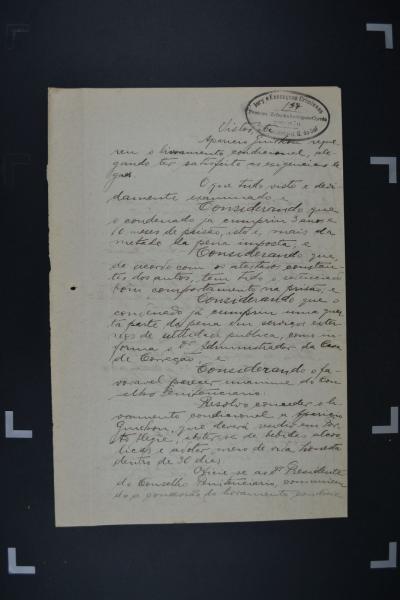 Jury e Execuções Criminaes
197
Vistos, etc.
Apparicio reque-
reu o livramento condicional, ale-
gando ter satisfeito as exigencias le-
gaes.
O que tudo visto e devi-
damente examinado, e
Considerando que
o condenado já cumpriu 3 anos e
10 meses de prisão, isto é, mais da
metade da pena imposta; e
Considerando que,
de acordo com os atestados constan-
tes dos autos, tem tido o sentenciado
bom comportamento na prisão, e
Considerando que o
condenado já cumpriu uma quar-
ta parte da pena em serviços exter-
nos de utilidade publica, com in-
forma o Dr. Administrador da Casa
de Correção; e
Considerando o fa-
voravel parecer unanime do Con-
selho Penitenciario:
Resolvo conceder o li-
vramento condicional a
que deverá residir em Por-
to Alegre, abster-se de bebidas alcoo-
licas e adotar meio de vida honesto
dentro de 30 dias.
Oficie-se ao Dr. Presidente
do Conselho Penitenciario, comunican-
do a concessão do livramento